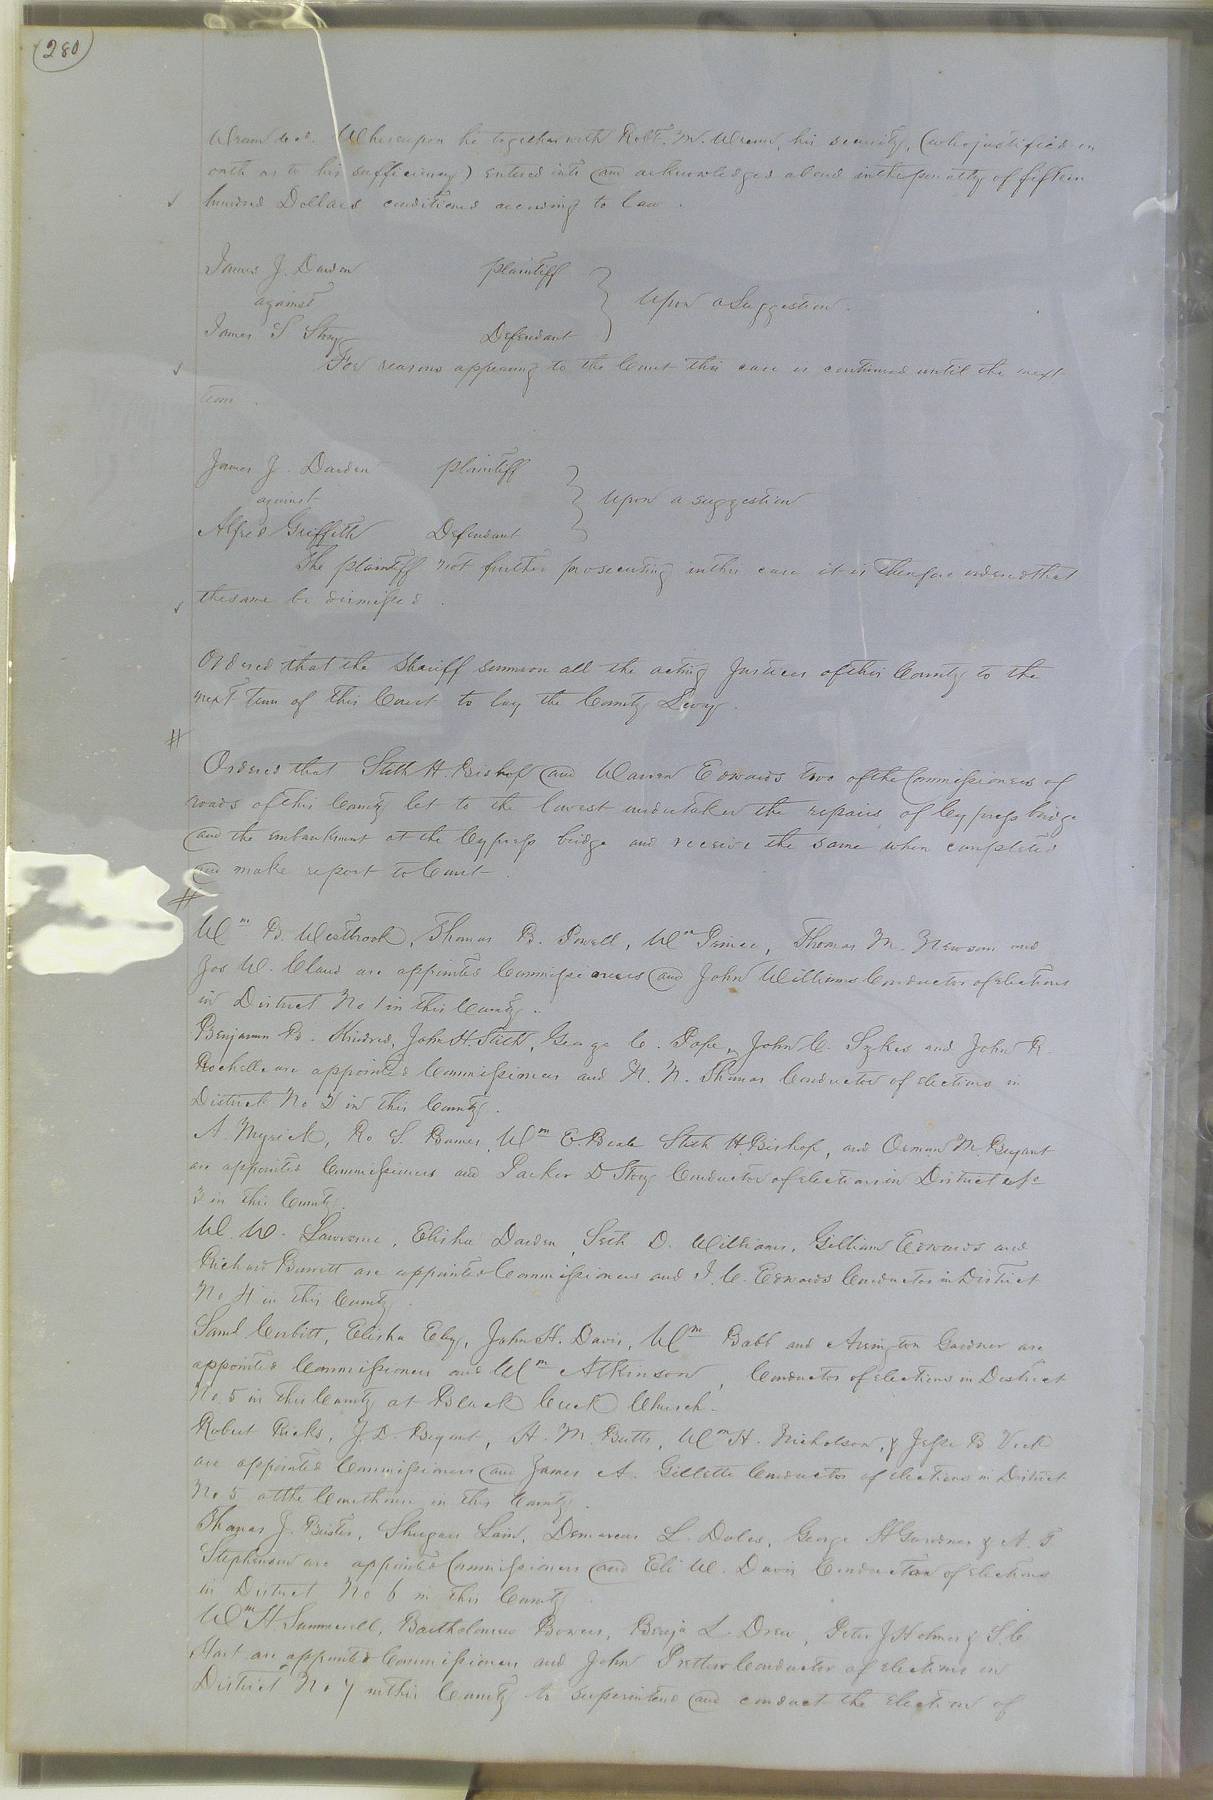 (280)
Wrenn dec'd. Whereupon he together with Robt. M. Wrenn, his security, (who justified on
oath as to his sufficiency) entered into and acknowledged a bond in the penalty of fifteen
hundred Dollars conditioned according to law.
James J. Darden plaintiff
against } Upon a Suggestion.
James S Story Defendant
For reasons appearing to the Court this case is continued until the next
term.
James J. Darden plaintiff
against } Upon a suggestion
Alfred Griffith Defendant
The plaintiff not further prosecuting in this case it is therefore ordered that
the same be dismissed.
Ordered that the Sheriff summon all the acting Justices of this County to the
next term of this Court to lay the County Levy.
#
Ordered that Stith H. Bishop and Warren Edwards two of the Commissioners of
roads of this County let to the lowest undertaker the repairs of Cypress bridge
and the embankment at the Cypress bridge and receive the same when completed
and make report to Court.
#
Wm B. Westbrook, Thomas B. Powell, Wm Prince, Thomas M. Newsom and
Jos W. Claud are appointed Commissioners and John Williams Conductor of elections
in District No 1 in this County.
Benjamin B. Kindred, John H. Stith, George C. Pope, John C. Sykes and John R.
Rochelle are appointed Commissioners and N. N. Thomas Conductor of elections in
District No 2 in this County.
A. Myrick, Ro S. Barnes, Wm E. Beale Stith H. Bishop, and Orman M. Bryant
are appointed Commissioners and Parker D Story Conductor of elections in District No
3 in this County.
W. W. Lawrence, Elisha Darden, Seth D. Williams, Gilliam Edwards and
Richard Barrett are appointed Commissioners and J. C. Edwards Conductor in District
No 4 in this County.
Saml Corbitt, Elisha Eley, John H. Davis, Wm Babb and Arington Gardner are
appointed Commissioners and Wm Atkinson, Conductor of elections in District
No 5 in this County at Black Creek Church.
Robert Ricks, J. D. Bryant, A. M. Butts, Wm H. Nicholson, & Jesse B Vick
are appointed Commissioners and James A. Gillette Conductor of elections in District
No 5 at the Courthouse in this County.
Thomas J. Bristes, Lain, Demarcus L. Doles, George H Gardner & A. T
Stephenson are appointed Commissioners and Eli W. Davis Conductor of elections
in District No 6 in this County.
Wm H. Summerell, Bartholomew Bowers, Benja L. Drew, Peter J Holmes & S. C
Hart are appointed Commissioners and John Pretlow Conductor of elections in
District No 7 in this County to superintend and conduct the election of